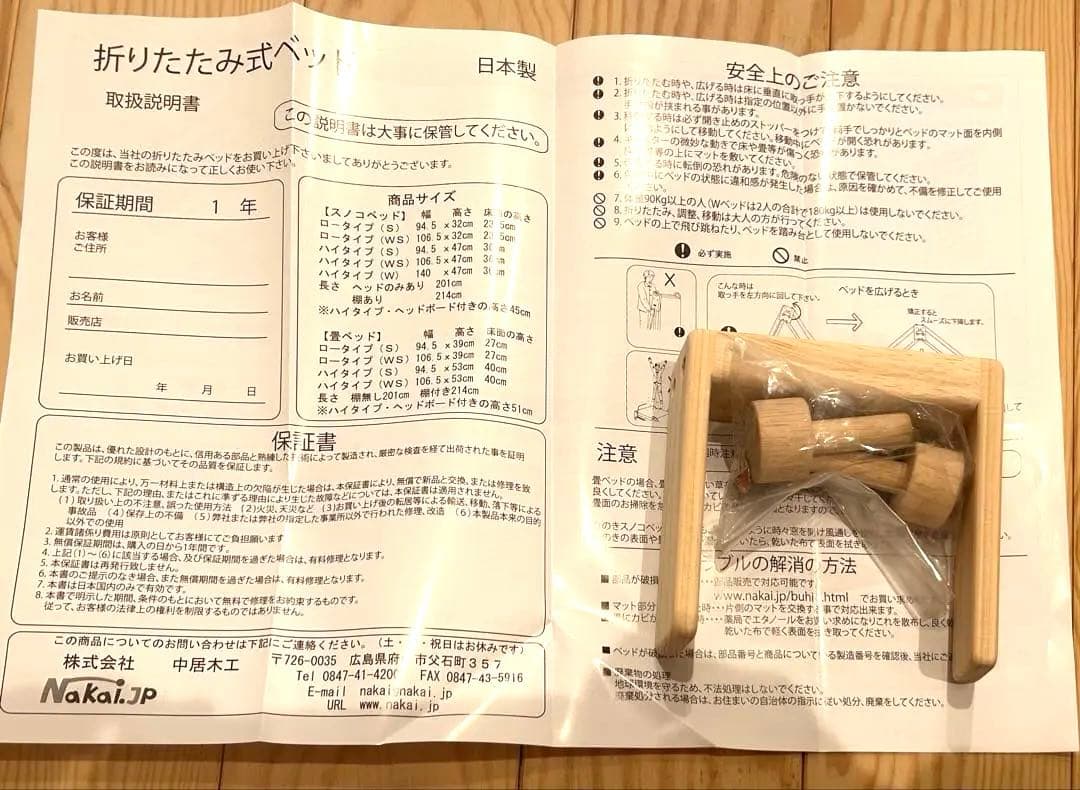 折りたたみ式ベッド
日本製
取扱説明書
この説明書は大事に保管してください。
この度は、当社の折りたたみベッドをお買い上げ下さいましてありがとうございます。
この説明書をお読みになって正しくお使い下さい。
保証期間 1 年
お客様
ご住所
お名前
販売店
お買い上げ日
年 月 日
商品サイズ
【スノコベッド】 幅 高さ 床面の高さ
ロータイプ(S) 94.5 x32cm
ロータイプ(WS) 106.5 x32cm
ハイタイプ(S) 94.5 x47cm
ハイタイプ(WS) 106.5 x47cm
ハイタイプ(W) 140 x47cm
長さ ヘッドのみあり 201cm
棚あり 214cm
※ハイタイプ・ヘッドボード付きの高さ45cm
【畳ベッド】 幅 高さ 床面の高さ
ロータイプ(S) 94.5 x39cm 27cm
ロータイプ(WS) 106.5 x39cm 27cm
ハイタイプ(S) 94.5 x53cm 40cm
ハイタイプ(WS) 106.5 x53cm 40cm
長さ 棚無し201cm 棚付き214cm
※ハイタイプ・ヘッドボード付きの高さ51cm
保証書
この製品は、優れた設計のもとに、信用ある部品と熟練した技術によって製造され、厳密な検査を経て出荷された事を証明
します。下記の規約に基づいてその品質を保証します。
1. 通常の使用により、万一材料上または構造上の欠陥が生じた場合は、本保証書により、無償で新品と交換、または修理を致
します。ただし、下記の理由、またはこれに準ずる理由により生じた故障などについては、本保証書は適用されません。
(1)取り扱い上の不注意、誤った使用方法 (2)火災、天災など (3)お買い上げ後の転居等による輸送、移動、落下等による
事故品 (4)保存上の不備 (5)弊社または弊社の指定した事業所以外で行われた修理、改造 (6)本製品本来の目的
以外での使用
2. 運賃諸係り費用は原則としてお客様にてご負担願います
3. 無償保証期間は、購入の日から1年間です。
4. 上記(1)~(6)に該当する場合、及び保証期間を過ぎた場合は、有料修理となります。
5. 本保証書は再発行致しません。
6. 本書のご提示のなき場合、また無償期間を過ぎた場合は、有料修理となります。
7. 本書は日本国内のみで有効です。
8. 本書で明示した期間、条件のもとにおいて無料で修理をお約束するものです。
従って、お客様の法律上の権利を制限するものではありません。
この商品についてのお問い合わせは下記にご連絡ください。(土・ ・祝日はお休みです)
株式会社 中居木工
〒726-0035 広島県府 市父石町357
Tel 0847-41-4200 FAX 0847-43-5916
E-mail nakai@nakai.jp
URL www.nakai.jp
NaKai.JP
安全上のご注意
1. 折りたたむ時や、広げる時は床に垂直に取っ手が 下するようにしてください。
2. 折りたたむ時や、広げる時は指定の位置以外に手 置かないでください。
手 が挟まれる事があります。
3. 時は必ず開き止めのストッパーをつけ 両手でしっかりとベッドのマット面を内側
ようにして移動してください。移動中に が開く恐れがあります。
4. ターの微妙な動きで床や畳等が傷つく恐 があります。
等の上にマットを敷いてください。
5. 時に転倒の恐れがあります。危険のない状態で保管してください。
6. にベッドの状態に違和感が発生した場合は、原因を確かめて、不備を修正してご使用
ください。
7. 体重90Kg以上の人(Wベッドは2人の合計で180kg以上)は使用しないでください。
8. 折りたたみ、調整、移動は大人の方が行ってください。
9. ベッドの上で飛び跳ねたり、ベッドを踏み台として使用しないでください。
必ず実施 禁止
こんな時は
取っ手を左方向に回して下さい。
ベッドを広げるとき
矯正すると
スムーズに下降します。
注意
畳ベッドの場合、
良くしてください。
畳面のお掃除を
のきスノコベッ ように時々窓を開け風通しを
のきの表面や たら、乾いた布で表面を拭き
ブルの解消の方法
部品が破損 ・・・部品販売で対応可能です
www.nakai.jp/buhin.html でお買い求め
マット部分 時・・・片側のマットを交換する事で対応出来ます。
にカビ 時・・・薬局でエタノールをお買い求めになりこれを散布し、良く乾
乾いた布で軽く表面を拭き取ってください。
ベッドが破損した場合は、部品番号と商品についている製造番号を確認後、当社にご
廃棄物の処理
地球環境を守るため、不法処理はしないでください。
廃棄処分される場合は、お住まいの自治体の指示に従い処分、廃棄をしてください。